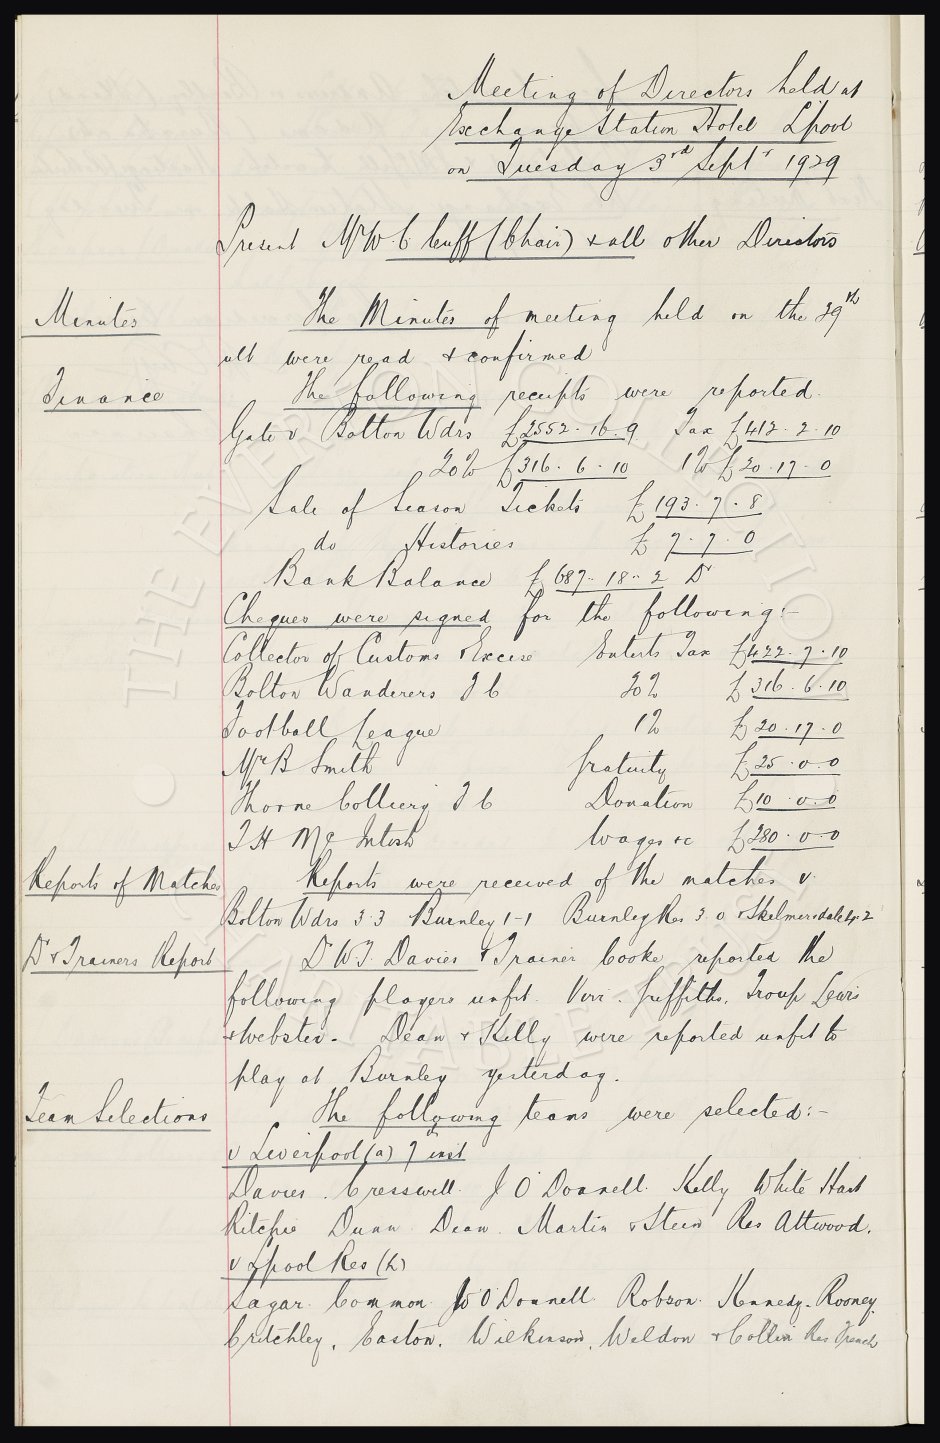 Meeting of Directors held at
Exchange Station Hotel L'pool
on Tuesday 3rd Septr 1929
Present Mr W C Cuff (Chair) & all other Directors
Minutes
The Minutes of meeting held on the 29th
ult were read & confirmed
Finance
The following receipts were reported.
Gate v Bolton Wdrs £2552.16.9 Tax £412.2.10
20% £316.6.10 1% £20.17.0
Sale of Season Tickets £193.7.8
do Histories £7.7.0
Bank Balance £687.18.2 Dr
Cheques were signed for the following:-
Collector of Customs & Excise Entents Tax £422.7.10
Bolton Wanderers F C 20% £316.6.10
Football League 1% £20.17.0
Mr B Smith Gratuity £25.0.0
Thorne Colliery F C Donation £10.0.0
T H McIntosh Wages &c £280.0.0
Reports of Matches
Reports were received of the matches v.
Bolton Wdrs 3.3 Burnley 1-1 Burnley Res 3.0 & Skelmersdale 4.2
Dr & Trainers Report
Dr W.J. Davies & Trainer Cooke reported the
following players unfit. Virr. Griffiths. Troup Lewis
& Webster. Dean & Kelly were reported unfit to
play at Burnley yesterday.
Team Selections
The following teams were selected:-
v Liverpool (a) 7 inst
Davies. Cresswell. J O'Donnell. Kelly White Hart
Ritchie Dunn Dean. Martin & Stein Res Attwood.
v L'pool Res (h)
Sagar. Common W O'Donnell. Robson. Kennedy. Rooney.
Critchley. Easton. Wilkinson. Weldon & Collin Res French
THE EVERTON COLLECTION
CHARITABLE TRUST